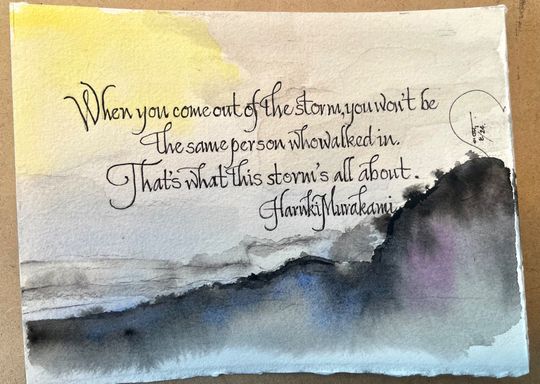 When you come out of the storm, you won't be
the same person who walked in.
That's what this storm's all about.
Haruki Murakami